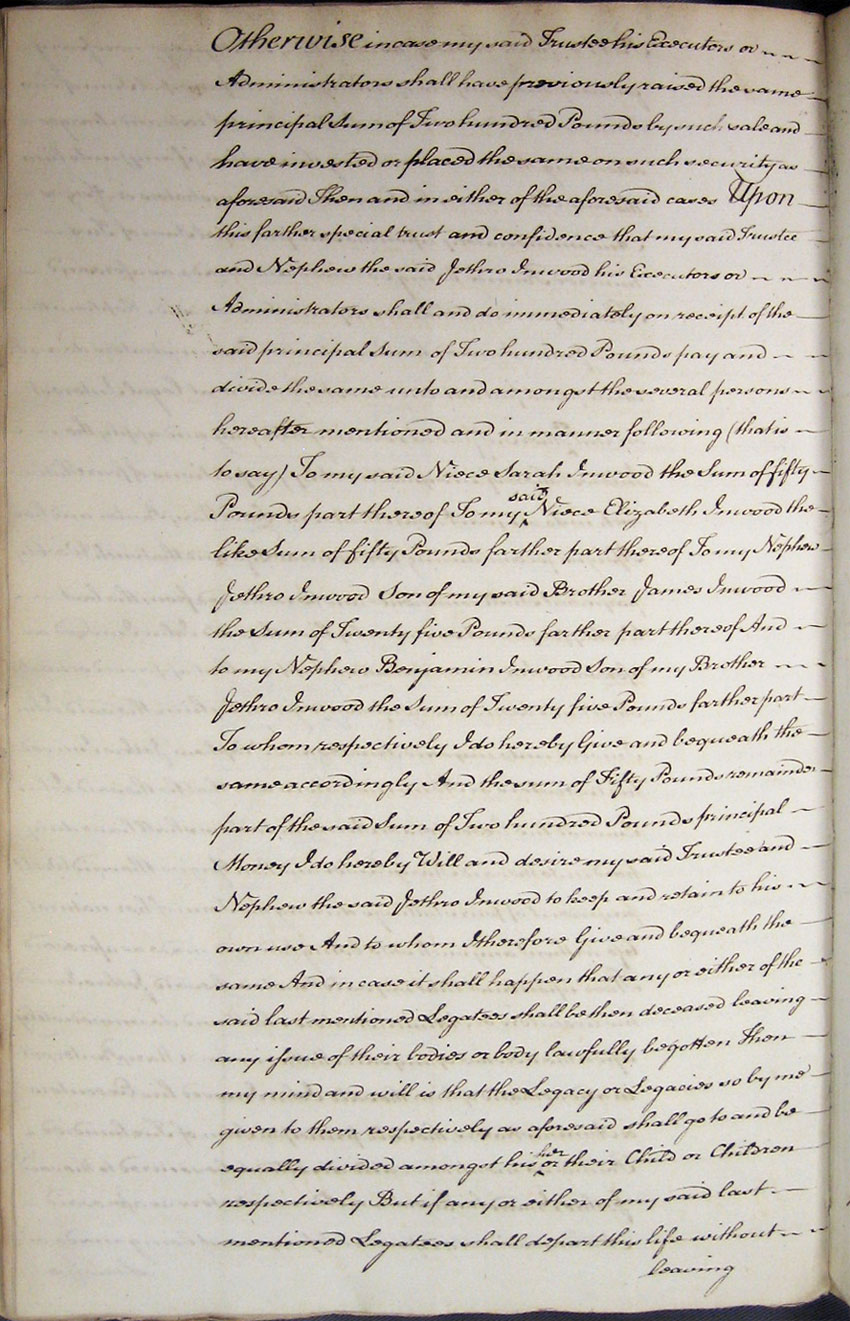 Otherwise in case my said Trustee his Executors or
Administrators shall have previously raised the same
principal Sum of Two hundred Pounds by such sale and
have invested or placed the same on such security as
aforesaid Then and in either of the aforesaid cases Upon
this farther special trust and confidence that my said Trustee
and Nephew the said Jethro Inwood his Executors or
Administrators shall and do immediately on receipt of the
said principal Sum of Two hundred Pounds pay and
divide the same unto and amongst the several persons
hereafter mentioned and in manner following (that is
to say) To my said Niece Sarah Inwood the Sum of fifty
Pounds part thereof To my said Niece Elizabeth Inwood the
like Sum of fifty Pounds farther part thereof To my Nephew
Jethro Inwood Son of my said Brother James Inwood
the Sum of Twenty five Pounds farther part thereof And
to my Nephew Benjamin Inwood Son of my Brother
Jethro Inwood the Sum of Twenty five Pounds farther part
To whom respectively I do hereby Give and bequeath the
same accordingly And the sum of Fifty Pounds remainder
part of the said Sum of Two hundred Pounds principal
Money I do hereby Will and desire my said Trustee and
Nephew the said Jethro Inwood to keep and retain to his
own use And to whom I therefore Give and bequeath the
same And in case it shall happen that any or either of the
said last mentioned Legatees shall be then deceased leaving
any issue of their bodies or body lawfully begotten Then
my mind and will is that the Legacy or Legacies so by me
given to them respectively as aforesaid shall go to and be
equally divided amongst his her or their Child or Children
respectively But if any or either of my said last
mentioned Legatees shall depart this life without
leaving